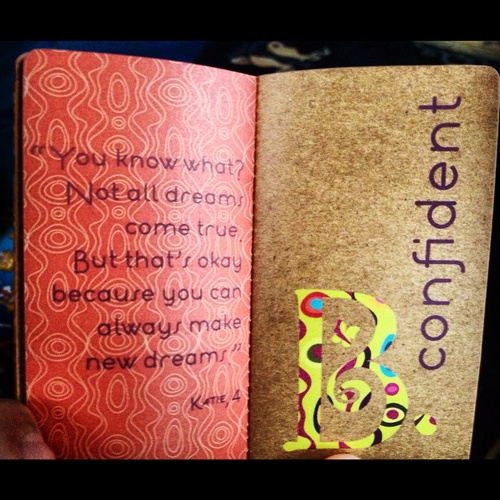 "You know what?
Not all dreams
come true.
But that's okay
because you can
always make
new dreams"
Katie, 4
B.
confident